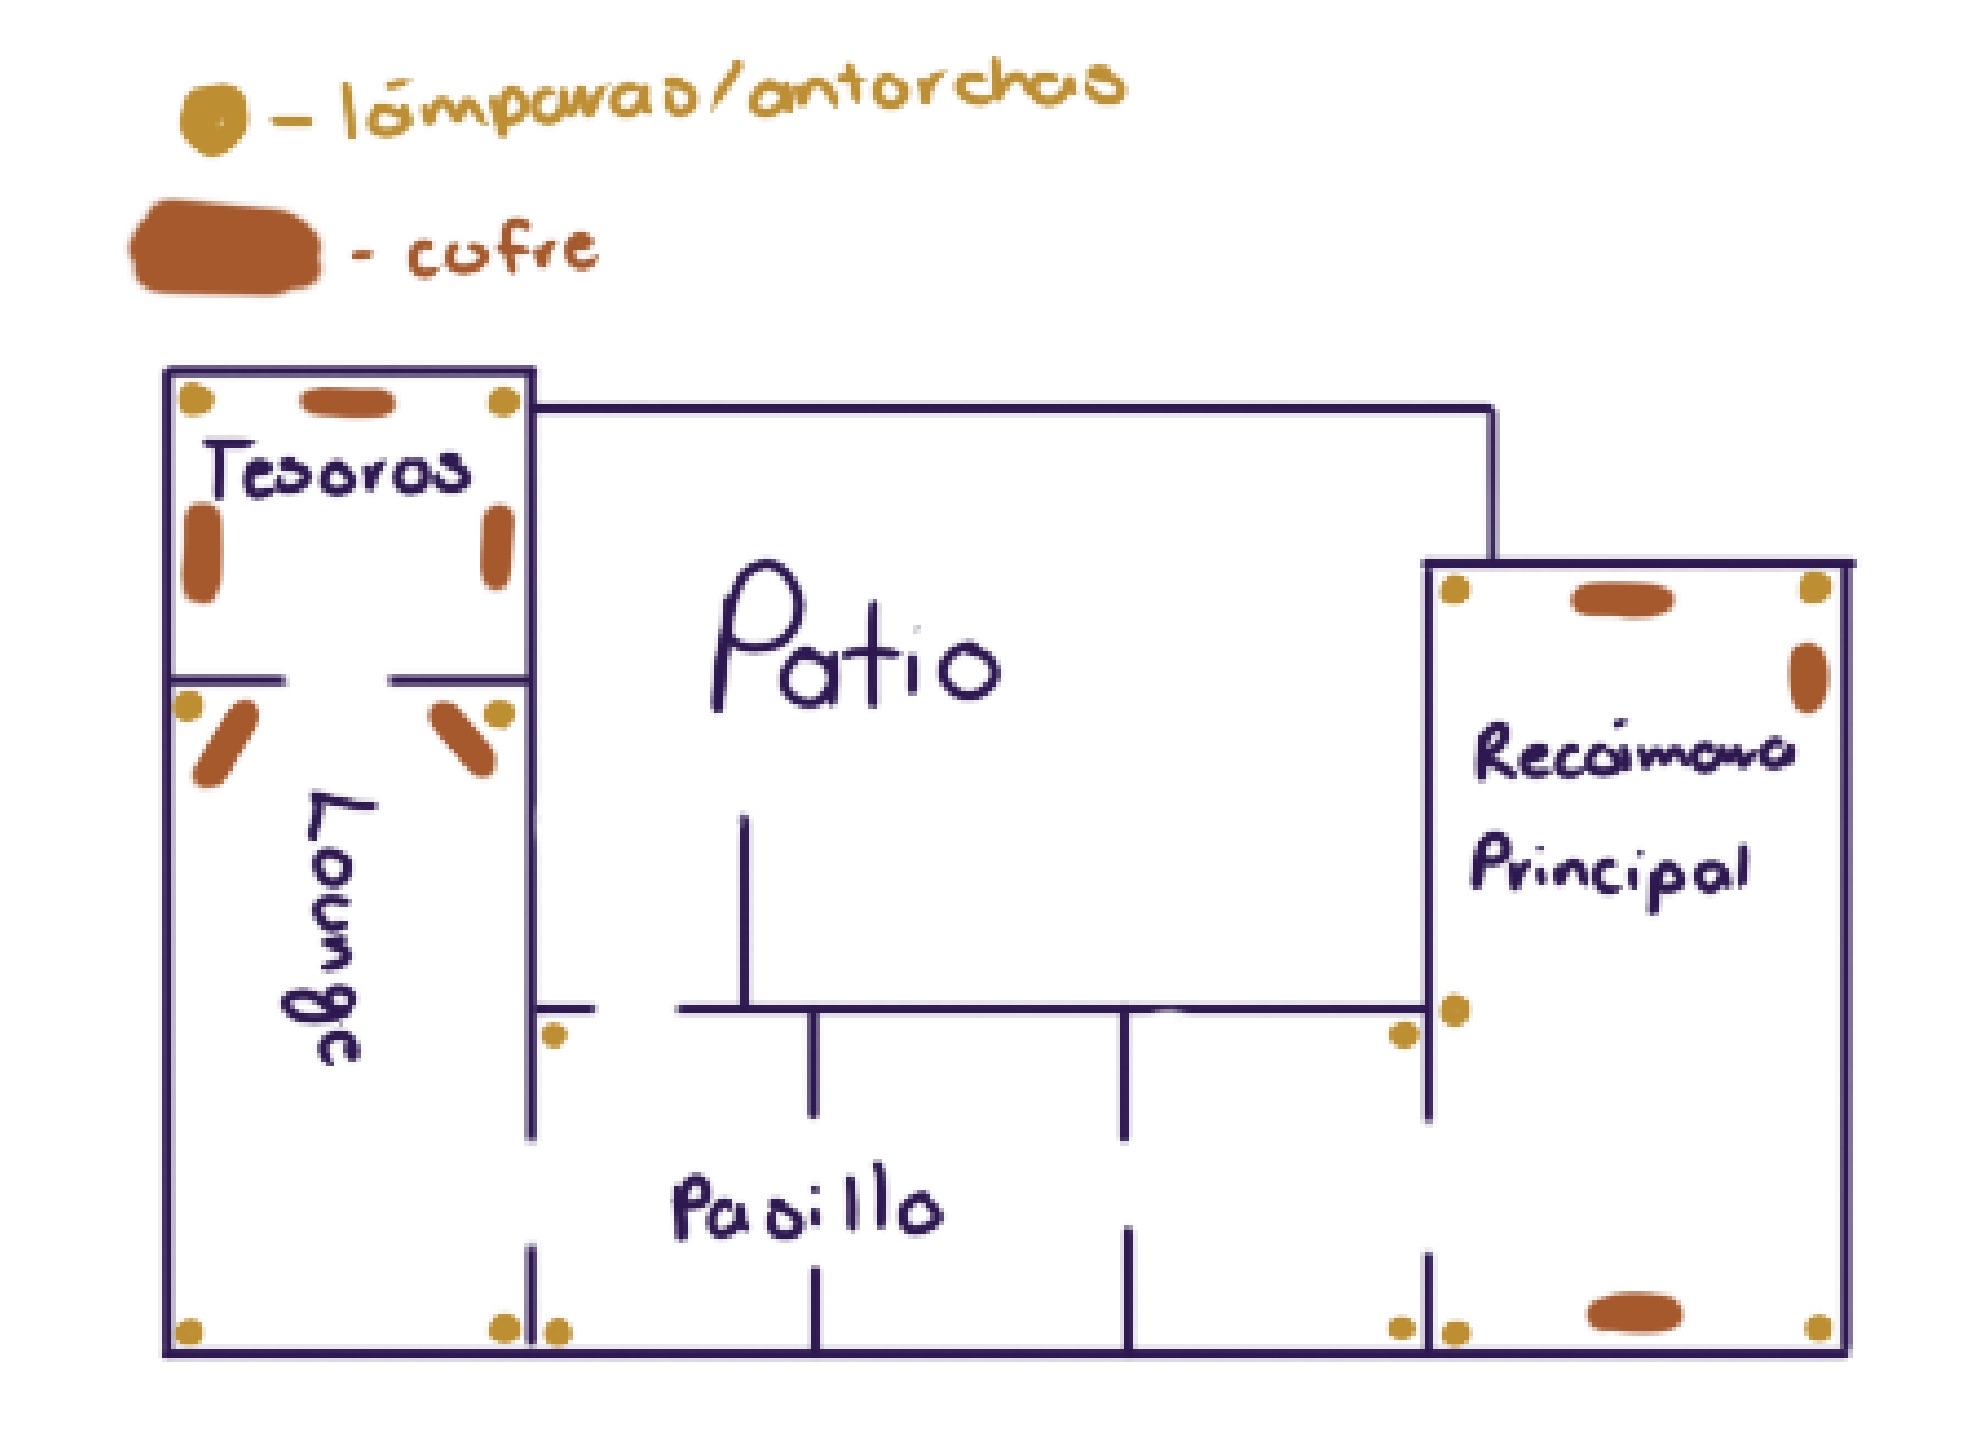 - lámparas/antorchas
- cofre
Tesoros
Patio
Recámara
Principal
Lounge
Pasillo